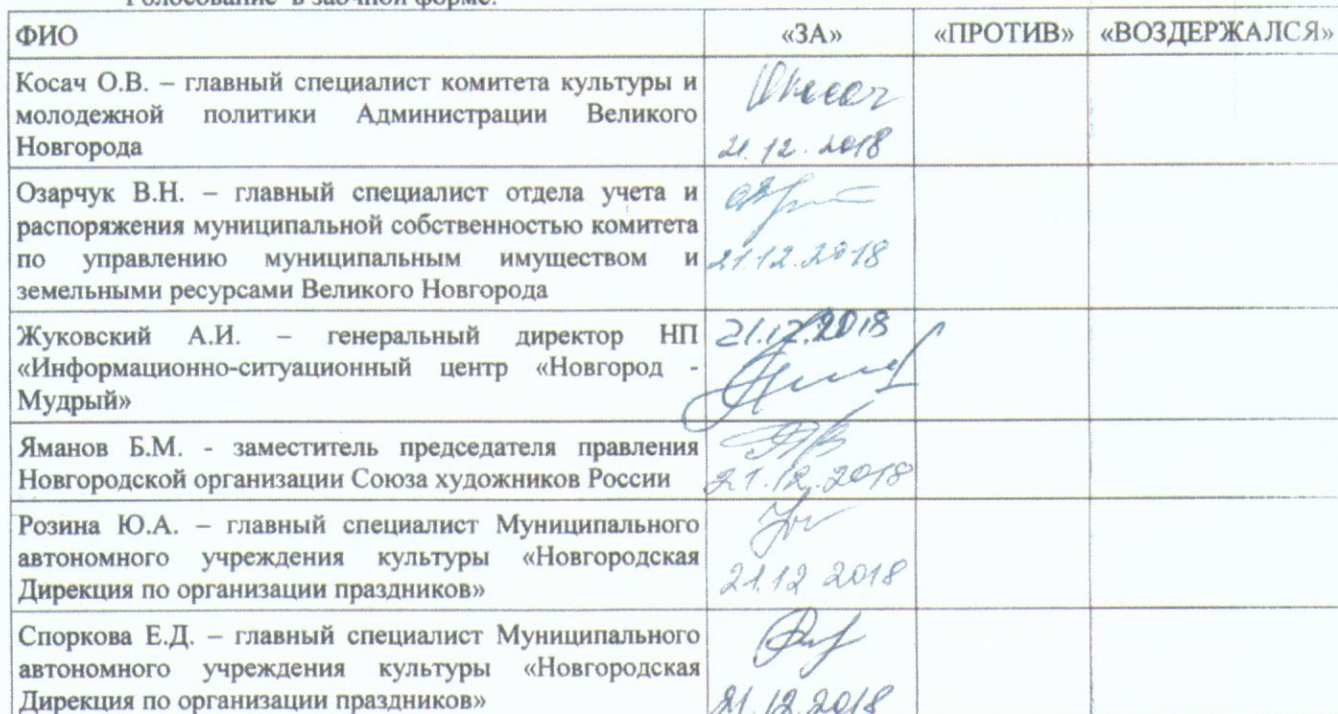 Голосование в заочной форме:
ФИО «ЗА» «ПРОТИВ» «ВОЗДЕРЖАЛСЯ»
Косач О.В. – главный специалист комитета культуры и
молодежной политики Администрации Великого
Новгорода
21.12.2018
Озарчук В.Н. – главный специалист отдела учета и
распоряжения муниципальной собственностью комитета
по управлению муниципальным имуществом и
земельными ресурсами Великого Новгорода
21.12.2018
Жуковский А.И. – генеральный директор НП
«Информационно-ситуационный центр «Новгород -
Мудрый»
21.12.2018
Яманов Б.М. - заместитель председателя правления
Новгородской организации Союза художников России
21.12.2018
Розина Ю.А. – главный специалист Муниципального
автономного учреждения культуры «Новгородская
Дирекция по организации праздников»
21.12 2018
Споркова Е.Д. – главный специалист Муниципального
автономного учреждения культуры «Новгородская
Дирекция по организации праздников»
21.12.2018